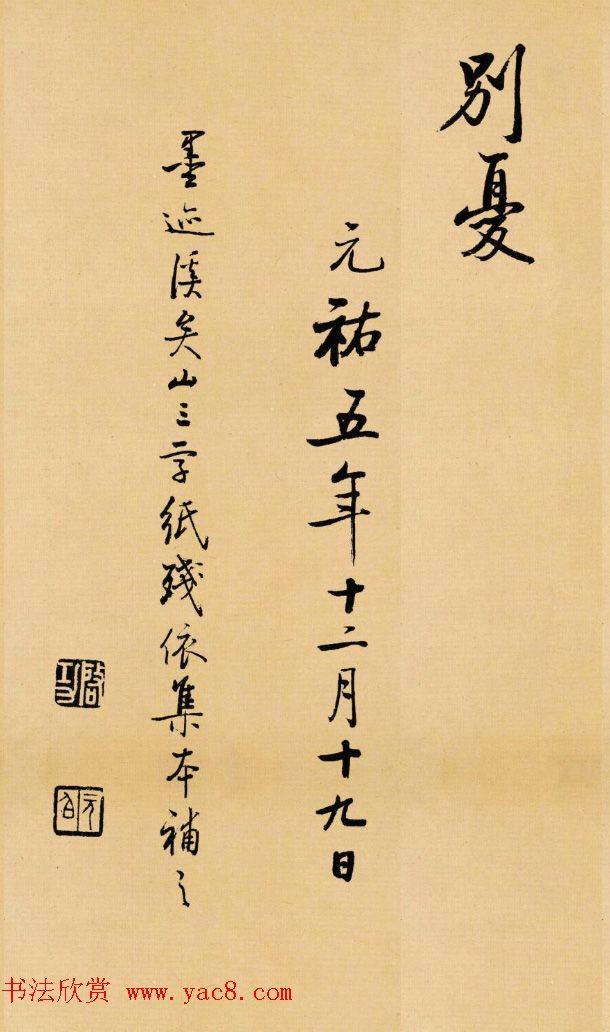 別憂
元祐五年十二月十九日
墨迹溪矣山三字紙殘依集本補之
启功
元白
书法欣赏 www.yac8.com